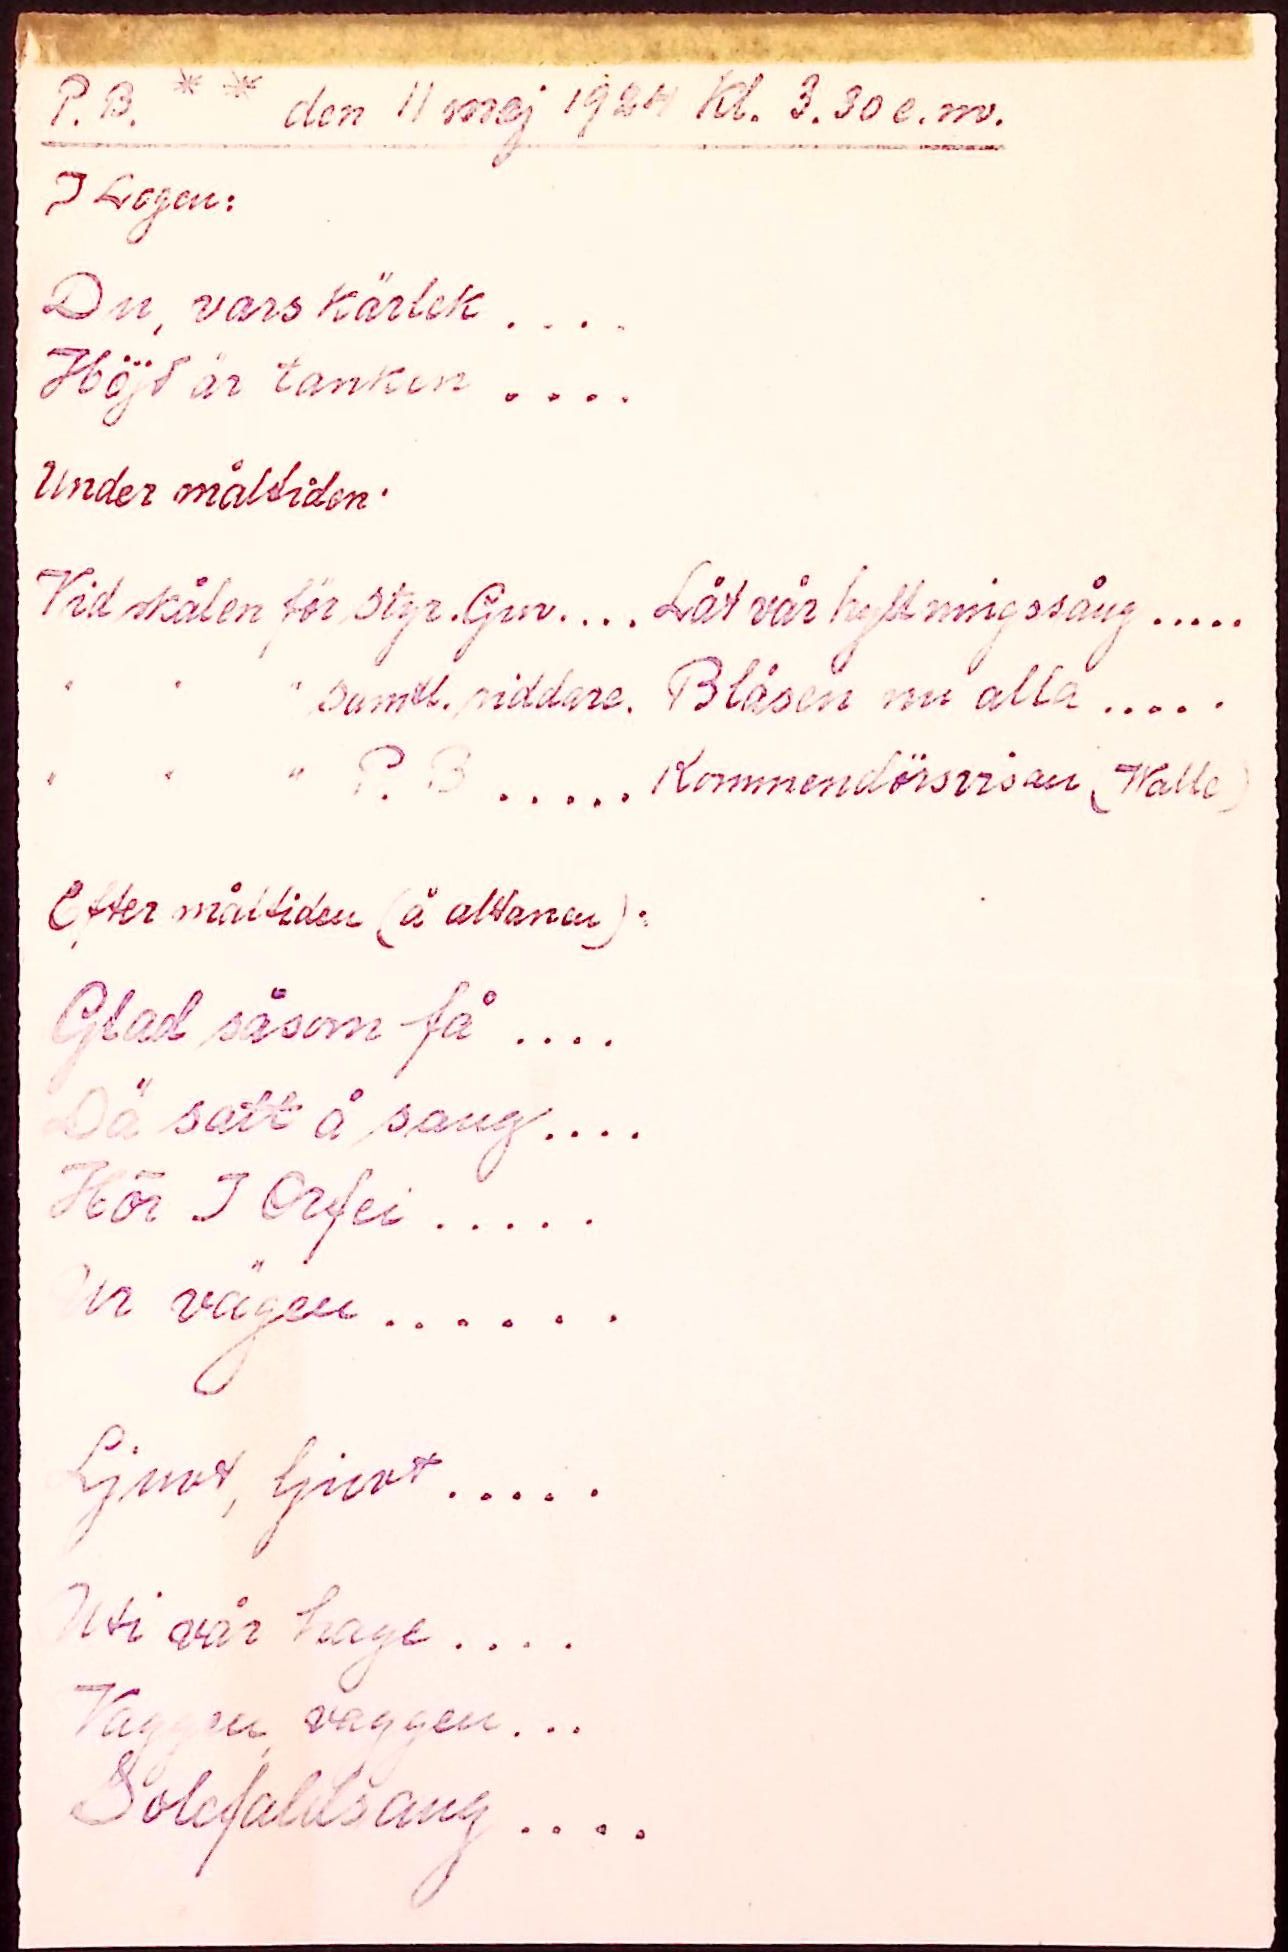 P.B. * * den 11 maj 1924 Kl. 3.30 e.m.
I Logen:
Du, vars kärlek ....
Höjd är tanken ....
Under måltiden:
Vid skålen för Styr. Guv.... Låt vår hyllningssång .....
" " " samtl. riddare. Blåsen nu alla .....
" " " P. B ..... Kommendörsvisan (Walle)
Efter måltiden (å altanen):
Glad såsom få ....
Dä satt å sang....
Hör I Orfei .....
Ur vägen ......
Ljuvt, ljuvt .....
Uti vår hage ....
Vaggen, vaggen...
Solefaldsang ....